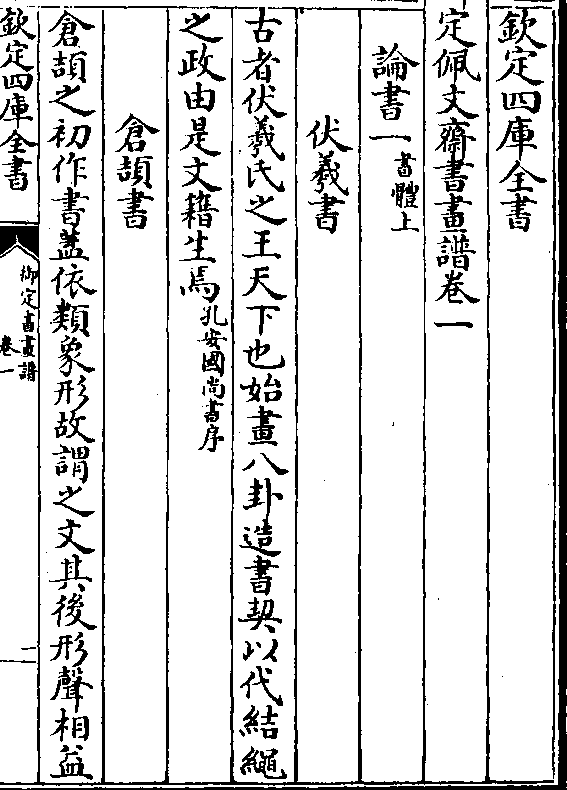 欽定四庫全書
定佩文齋書畫譜卷一
論書一 書體上
伏羲書
古者伏羲氏之王天下也始畫八卦造書契以代結繩
之政由是文籍生焉 孔安國尚書序
倉頡書
倉頡之初作書蓋依類象形故謂之文其後形聲相益
欽定四庫全書
御定書畫譜
卷一